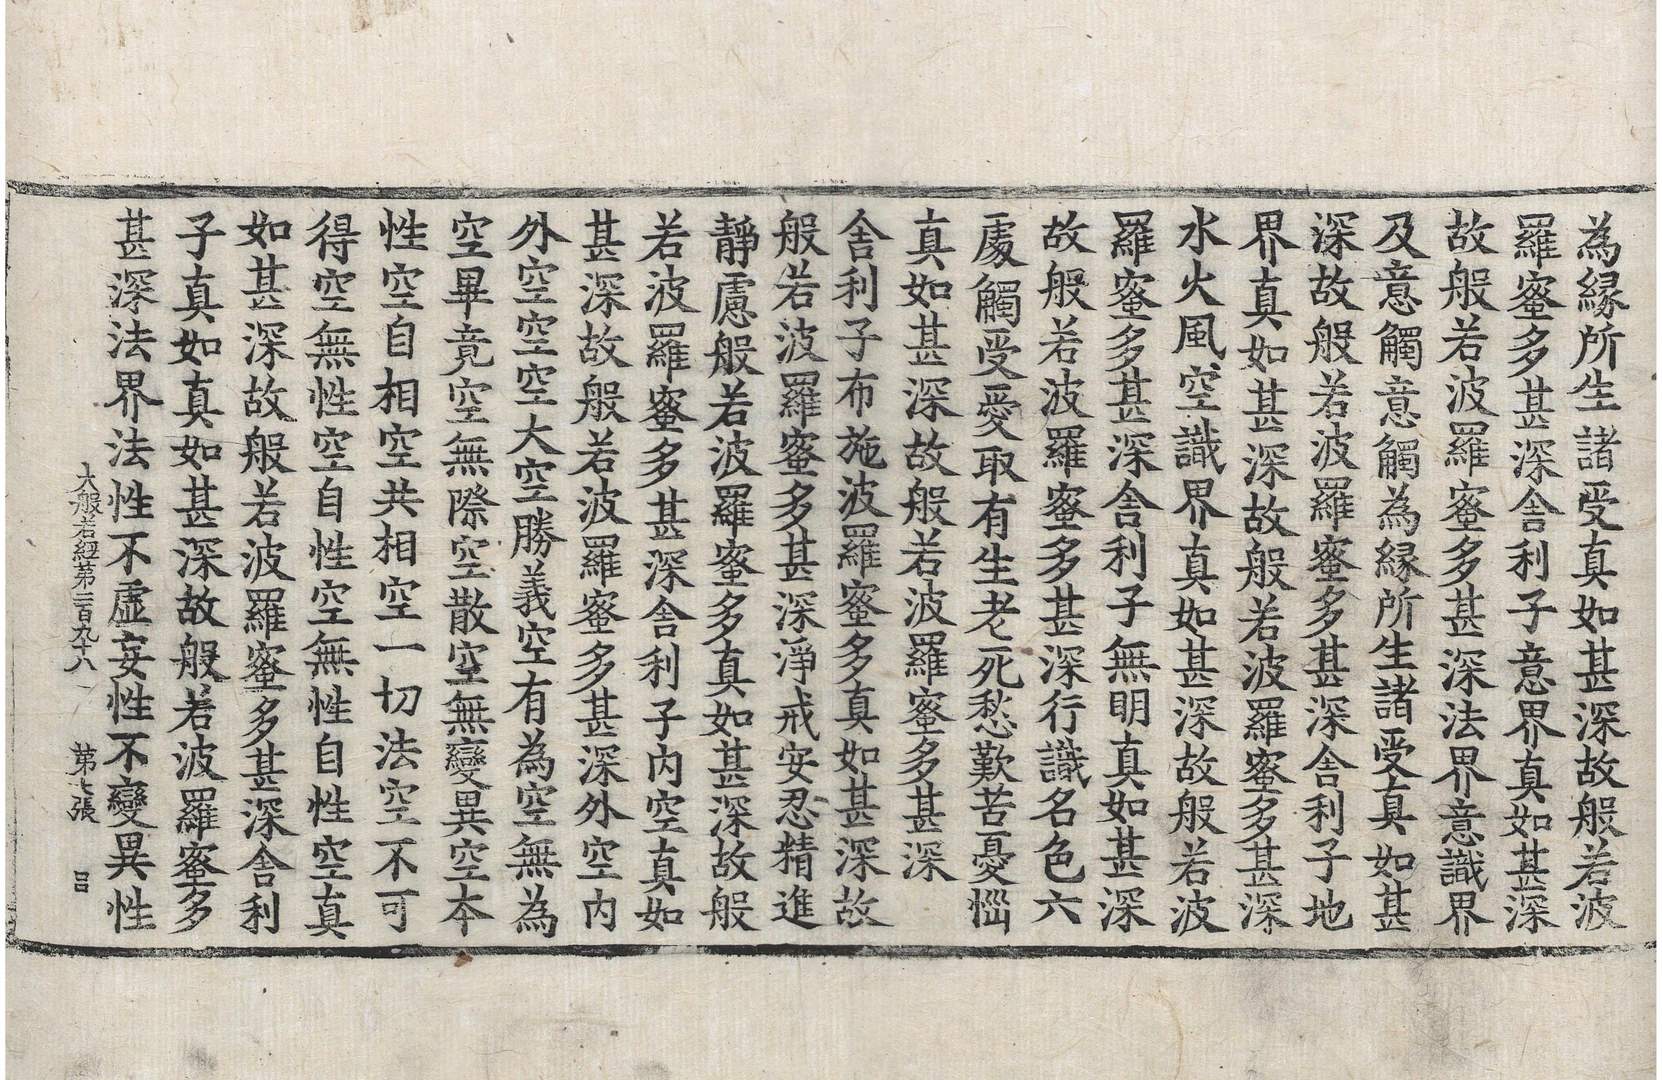 為緣所生諸受真如甚深故般若波
羅蜜多甚深舍利子意界真如甚深
故般若波羅蜜多甚深法界意識界
及意觸意觸為緣所生諸受真如甚
深故般若波羅蜜多甚深舍利子地
界真如甚深故般若波羅蜜多甚深
水火風空識界真如甚深故般若波
羅蜜多甚深舍利子無明真如甚深
故般若波羅蜜多甚深行識名色六
處觸受愛取有生老死愁歎苦憂惱
真如甚深故般若波羅蜜多甚深
舍利子布施波羅蜜多真如甚深故
般若波羅蜜多甚深淨戒安忍精進
靜慮般若波羅蜜多真如甚深故般
若波羅蜜多甚深舍利子內空真如
甚深故般若波羅蜜多甚深外空內
外空空空大空勝義空有為空無為
空畢竟空無際空散空無變異空本
性空自相空共相空一切法空不可
得空無性空自性空無性自性空真
如甚深故般若波羅蜜多甚深舍利
子真如真如甚深故般若波羅蜜多
甚深法界法性不虛妄性不變異性
大般若經第二百九十八 第七張 呂